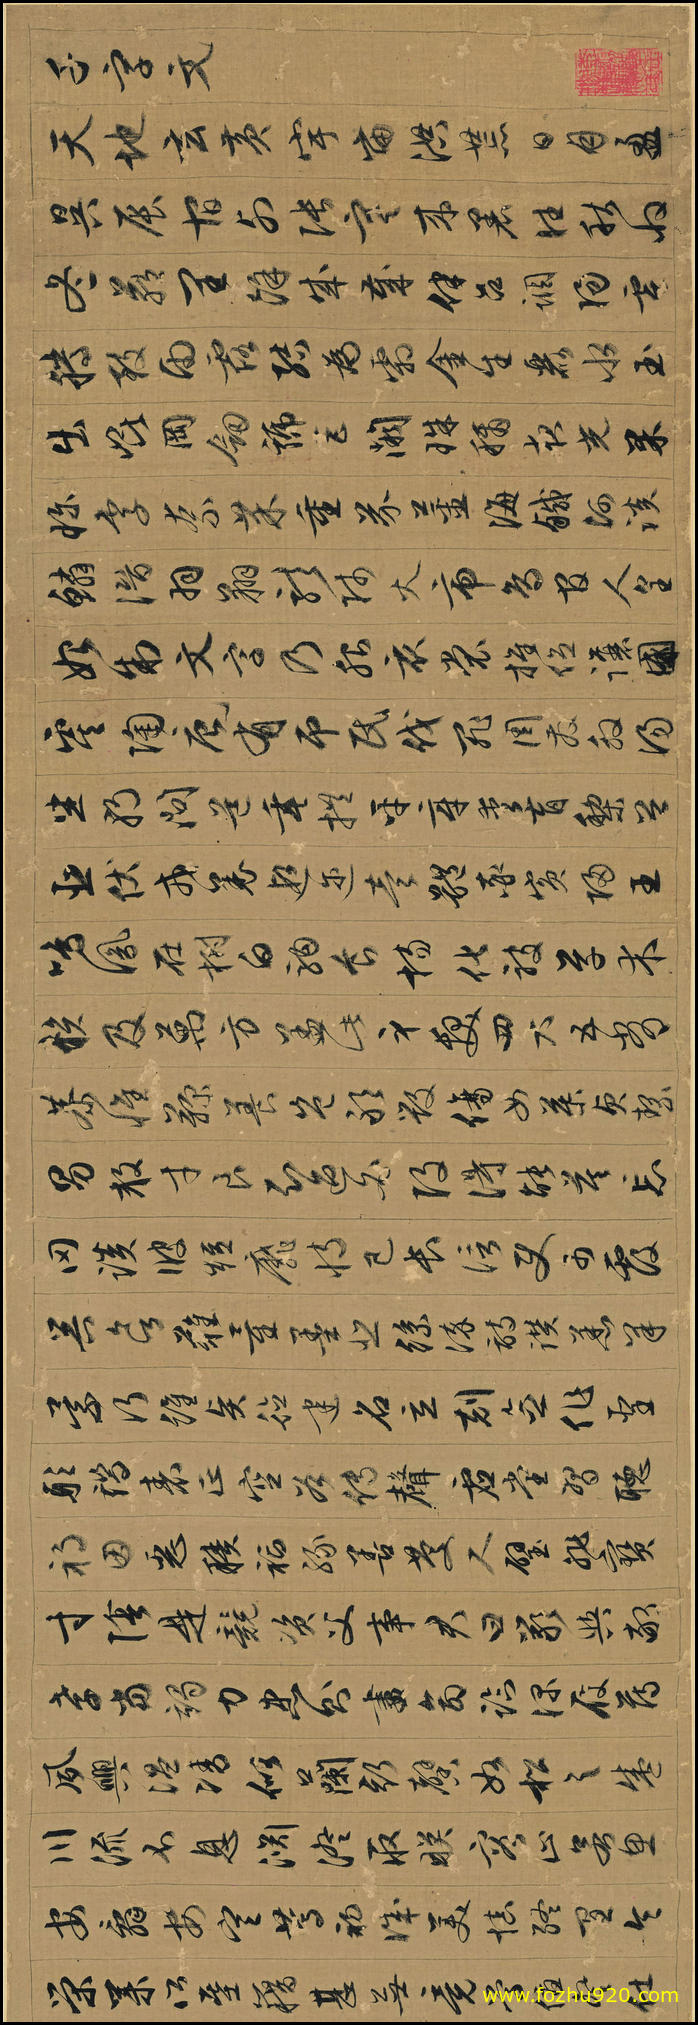 千字文
天地玄黃宇宙洪荒日月盈
昃辰宿列張寒來暑往秋收
冬藏閏餘成歲律呂調陽雲
騰致雨露結為霜金生麗水玉
出崑岡劍號巨闕珠稱夜光果
珍李柰菜重芥薑海鹹河淡
鱗潛羽翔龍師火帝鳥官人皇
始制文字乃服衣裳推位讓國
虞陶唐有弔民伐罪周發殷湯
坐朝問道垂拱平章愛育黎首
臣伏戎羌遐邇壹體率賓歸王
鳴鳳在樹白駒食場化被草木
賴及萬方蓋此身髮四大五常
恭惟鞠養豈敢毀傷女慕貞潔
男效才良知過必改得能莫忘
罔談彼短靡恃己長信使可覆
器欲難量墨悲絲染詩讚羔羊
景行維賢德建名立剋念作聖
形端表正空谷傳聲虛堂習聽
禍因惡積福緣善慶尺璧非寶
寸陰是競資父事君曰嚴與敬
孝當竭力忠則盡命臨深履薄
夙興溫凊似蘭斯馨如松之盛
川流不息淵澄取映容止若思
辭安定篤初誠美慎終宜令
榮業所基籍甚無竟學優登仕
www.fozhu920.com